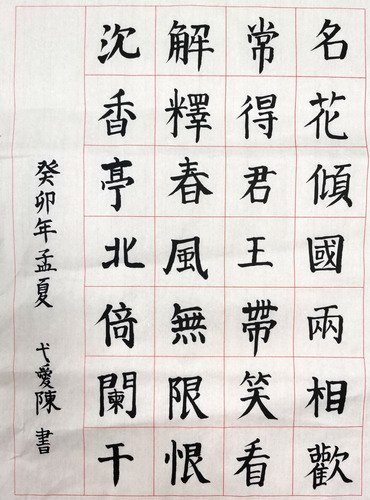 名花傾國兩相歡
常得君王帶笑看
解釋春風無限恨
沉香亭北倚闌干
癸卯年孟夏 弋愛陳書